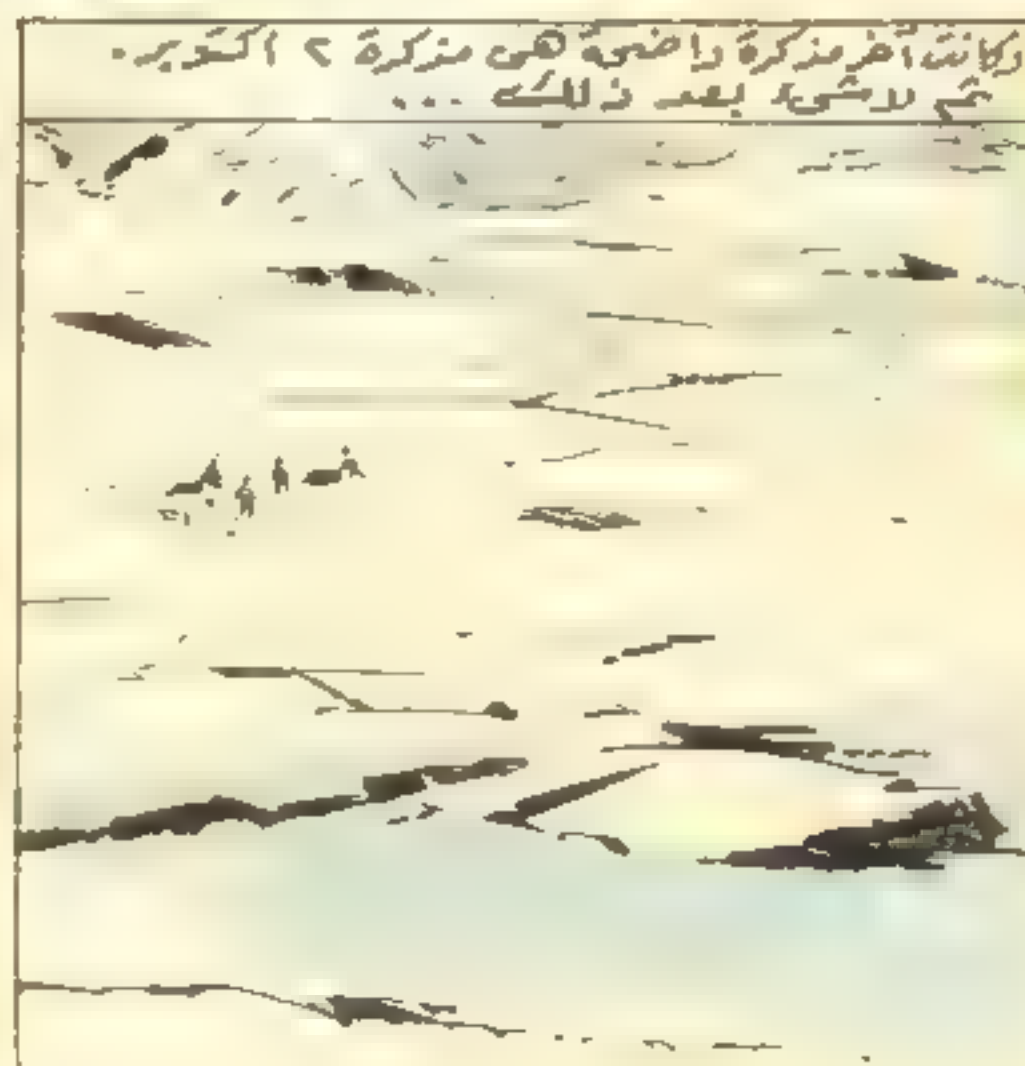 وكانت آخر مذكرة واضحة هى مذكرة ٢ أكتوبر.
ثم لاشىء بعد ذلك ...